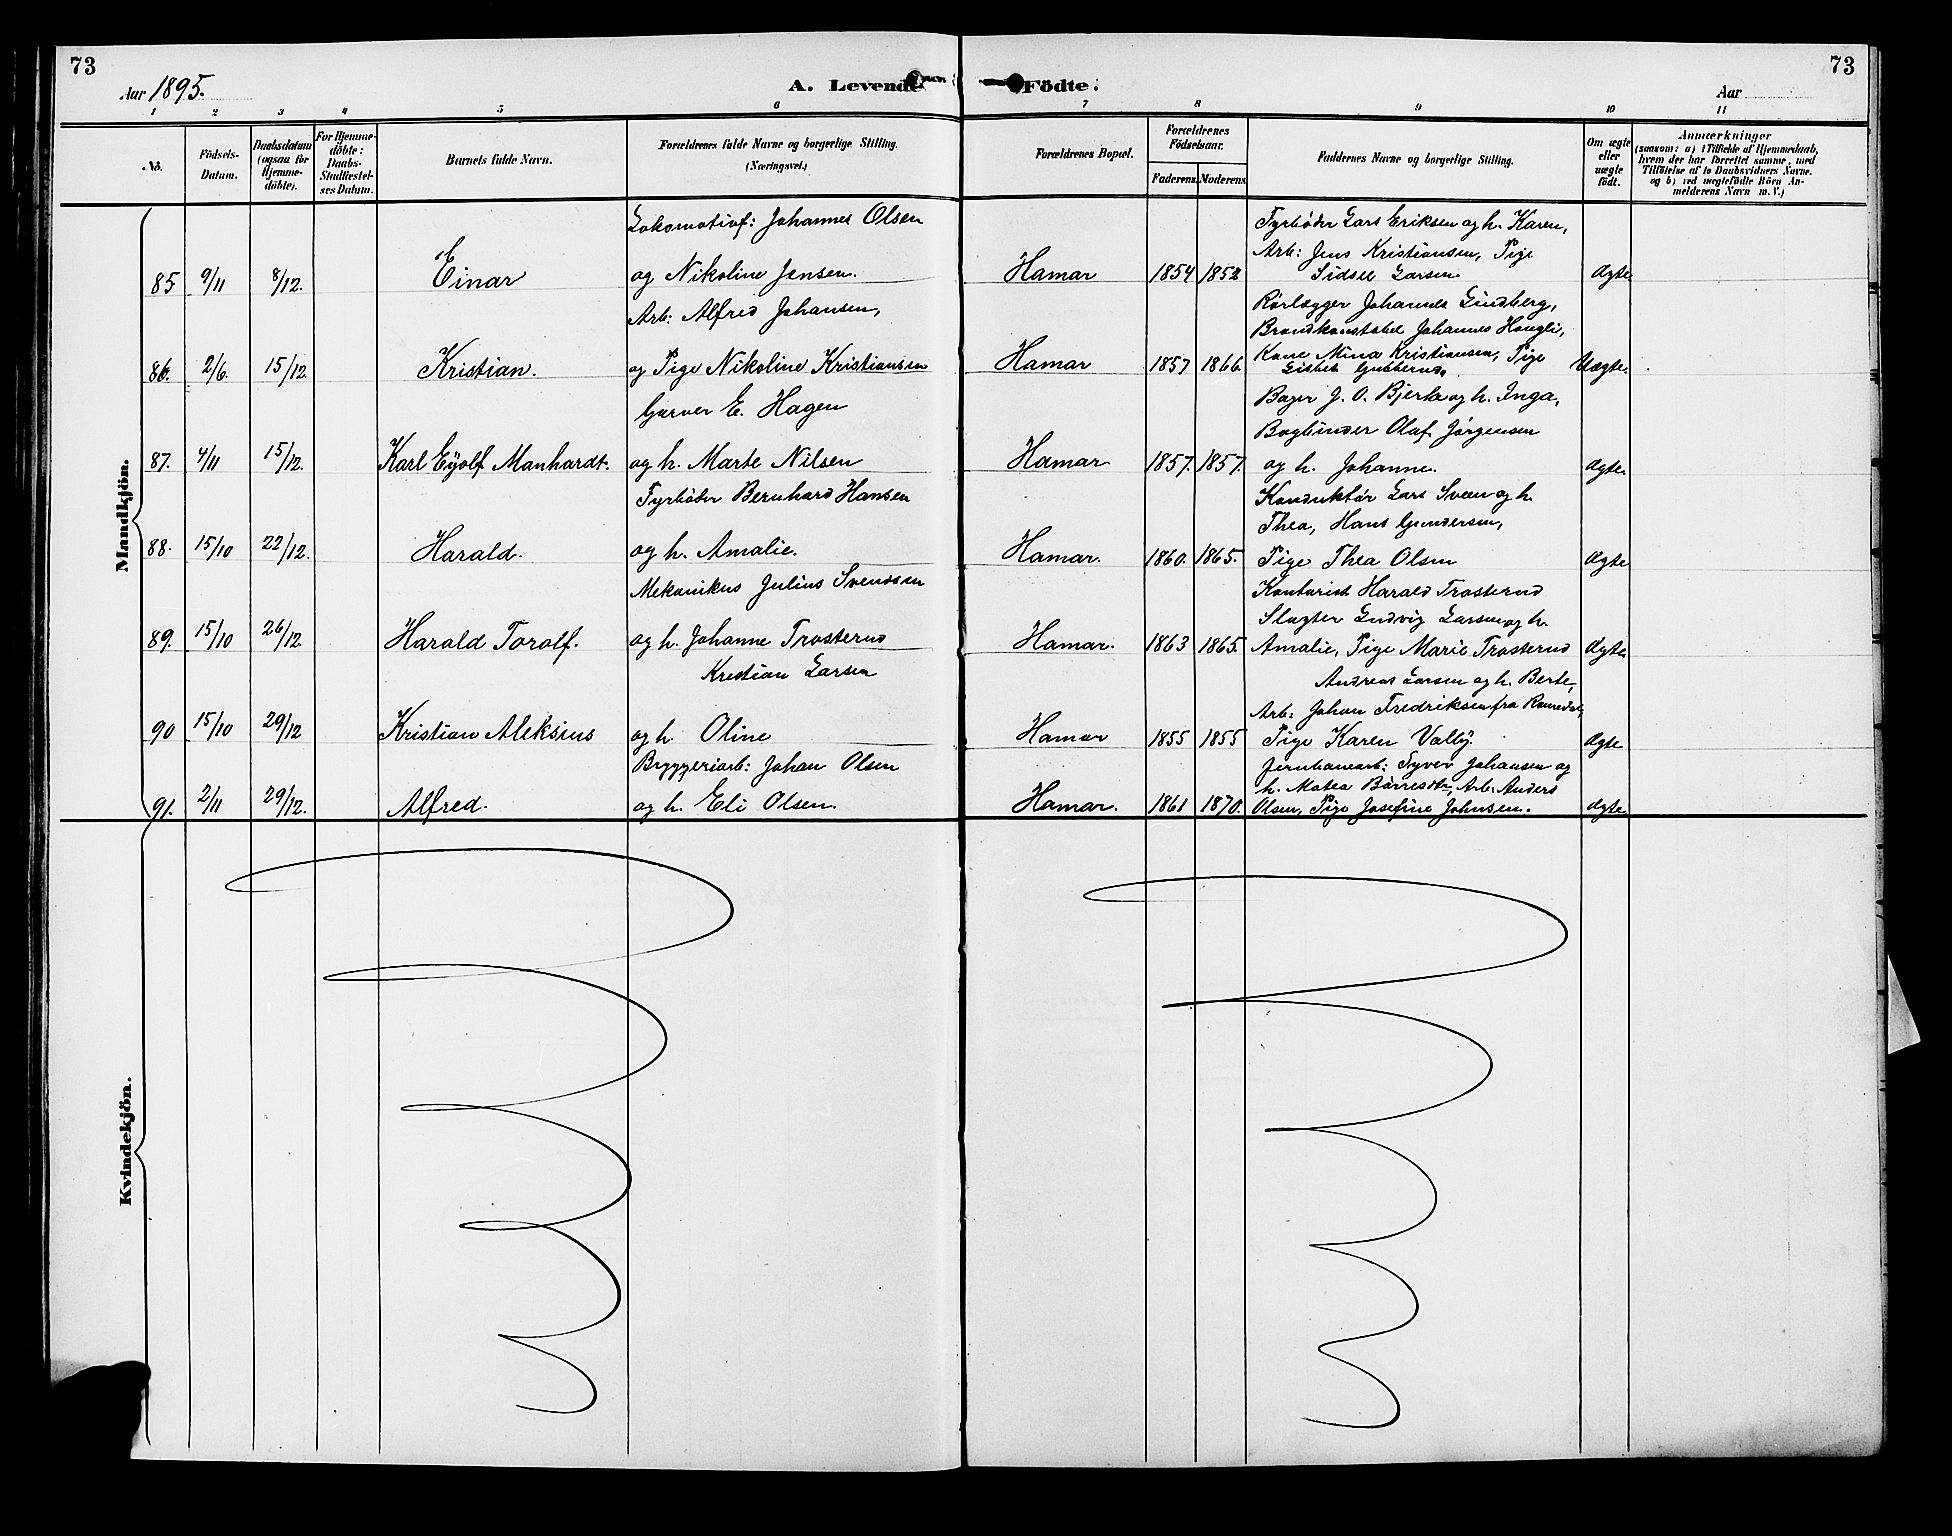 73
Aar 1895.
A. Levende
Födte.
Aar
73
1 2 3 4 5 6 7 8 9 10 11
No.
Födsels-
Datum.
Daabsdatum
(ogsaa for
Hjemme-
döbte).
For Hjemme-
döbte:
Daabs-
Stadfæstel-
ses Datum.
Barnets fulde Navn.
Forældrenes fulde Navne og borgerlige Stilling.
(Næringsvei.)
Forældrenes Bopæl.
Forældrenes
Födselsaar.
Faderens. Moderens.
Faddernes Navne og borgerlige Stilling.
Om ægte
eller
uægte
födt.
Anmærkninger
(saasom: a) i Tilfælde af Hjemmedaab,
hvem der har forrettet samme, med
Tilföielse af to Daabsvidners Navne,
og b) ved uægtefödte Börn An-
melderens Navn m. V.)
Mandkjön.
85 9/11 8/12. Einar
Lokomotivf: Johannes Olsen
og Nikoline Jensen.
Hamar 1854 1852
Fyrbøder Lars Eriksen og h. Karen,
Arb: Jens Kristiansen, Pige
Sidsel Larsen.
Ægte
86. 2/6. 15/12. Kristian.
Arb: Alfred Johansen,
og Pige Nikoline Kristiansen
Hamar 1857 1866.
Rørlægger Johannes Lindberg,
Brandkonstabel Johannes Hougli,
Kone Mina Kristiansen, Pige
Lisbet
Uægte.
87. 4/11 15/12. Karl Eyolf Manhardt.
Garver E. Hagen
og h. Marte Nilsen
Hamar 1857. 1857.
Bager J. O. Bjerke og h. Inga,
Bogbinder Olaf Jørgensen
og h. Johanne.
Ægte
88. 15/10 22/12. Harald.
Fyrbøder Bernhard Hansen
og h. Amalie.
Hamar. 1860. 1865.
Konduktør Lars Sveen og h.
Thea, Hans Gundersen,
Pige Thea Olsen
Ægte
89. 15/10 26/12. Harald Torolf.
Mekanikus Julius Svendsen
og h. Johanne Trosterud
Hamar. 1863 1865.
Kontorist Harald Trosterud
Slagter Ludvig Larsen og h.
Amalie, Pige Marie Trosterud
Ægte
90 15/10 29/12 Kristian Aleksius
Kristian Larsen
og h. Oline
Hamar 1855 1855
Andreas Larsen og h. Berte,
Arb: Johan Fredriksen fra Romedal,
Pige Karen Valby.
Ægte
91. 2/11 29/12. Alfred.
Bryggeriarb: Johan Olsen
og h. Eli Olsen.
Hamar. 1861 1870.
Jernbanearb: Syver Johansen og
h. Matea Børresdtr, Arb: Anders
Olsen, Pige Josefine Johnsen.
Ægte
Kvindekjön.